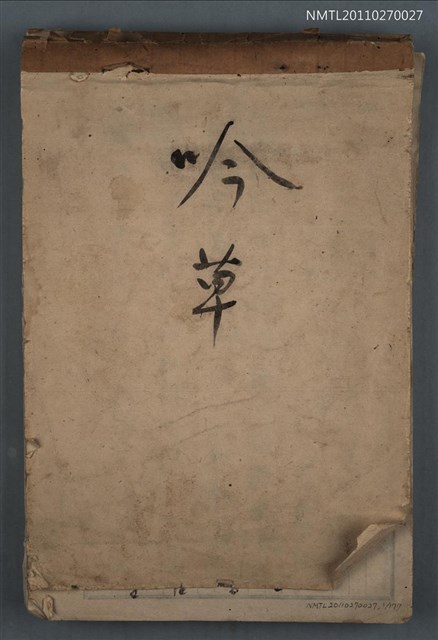 NMTL20110270027
吟
草
NMTL20110270027_1/177